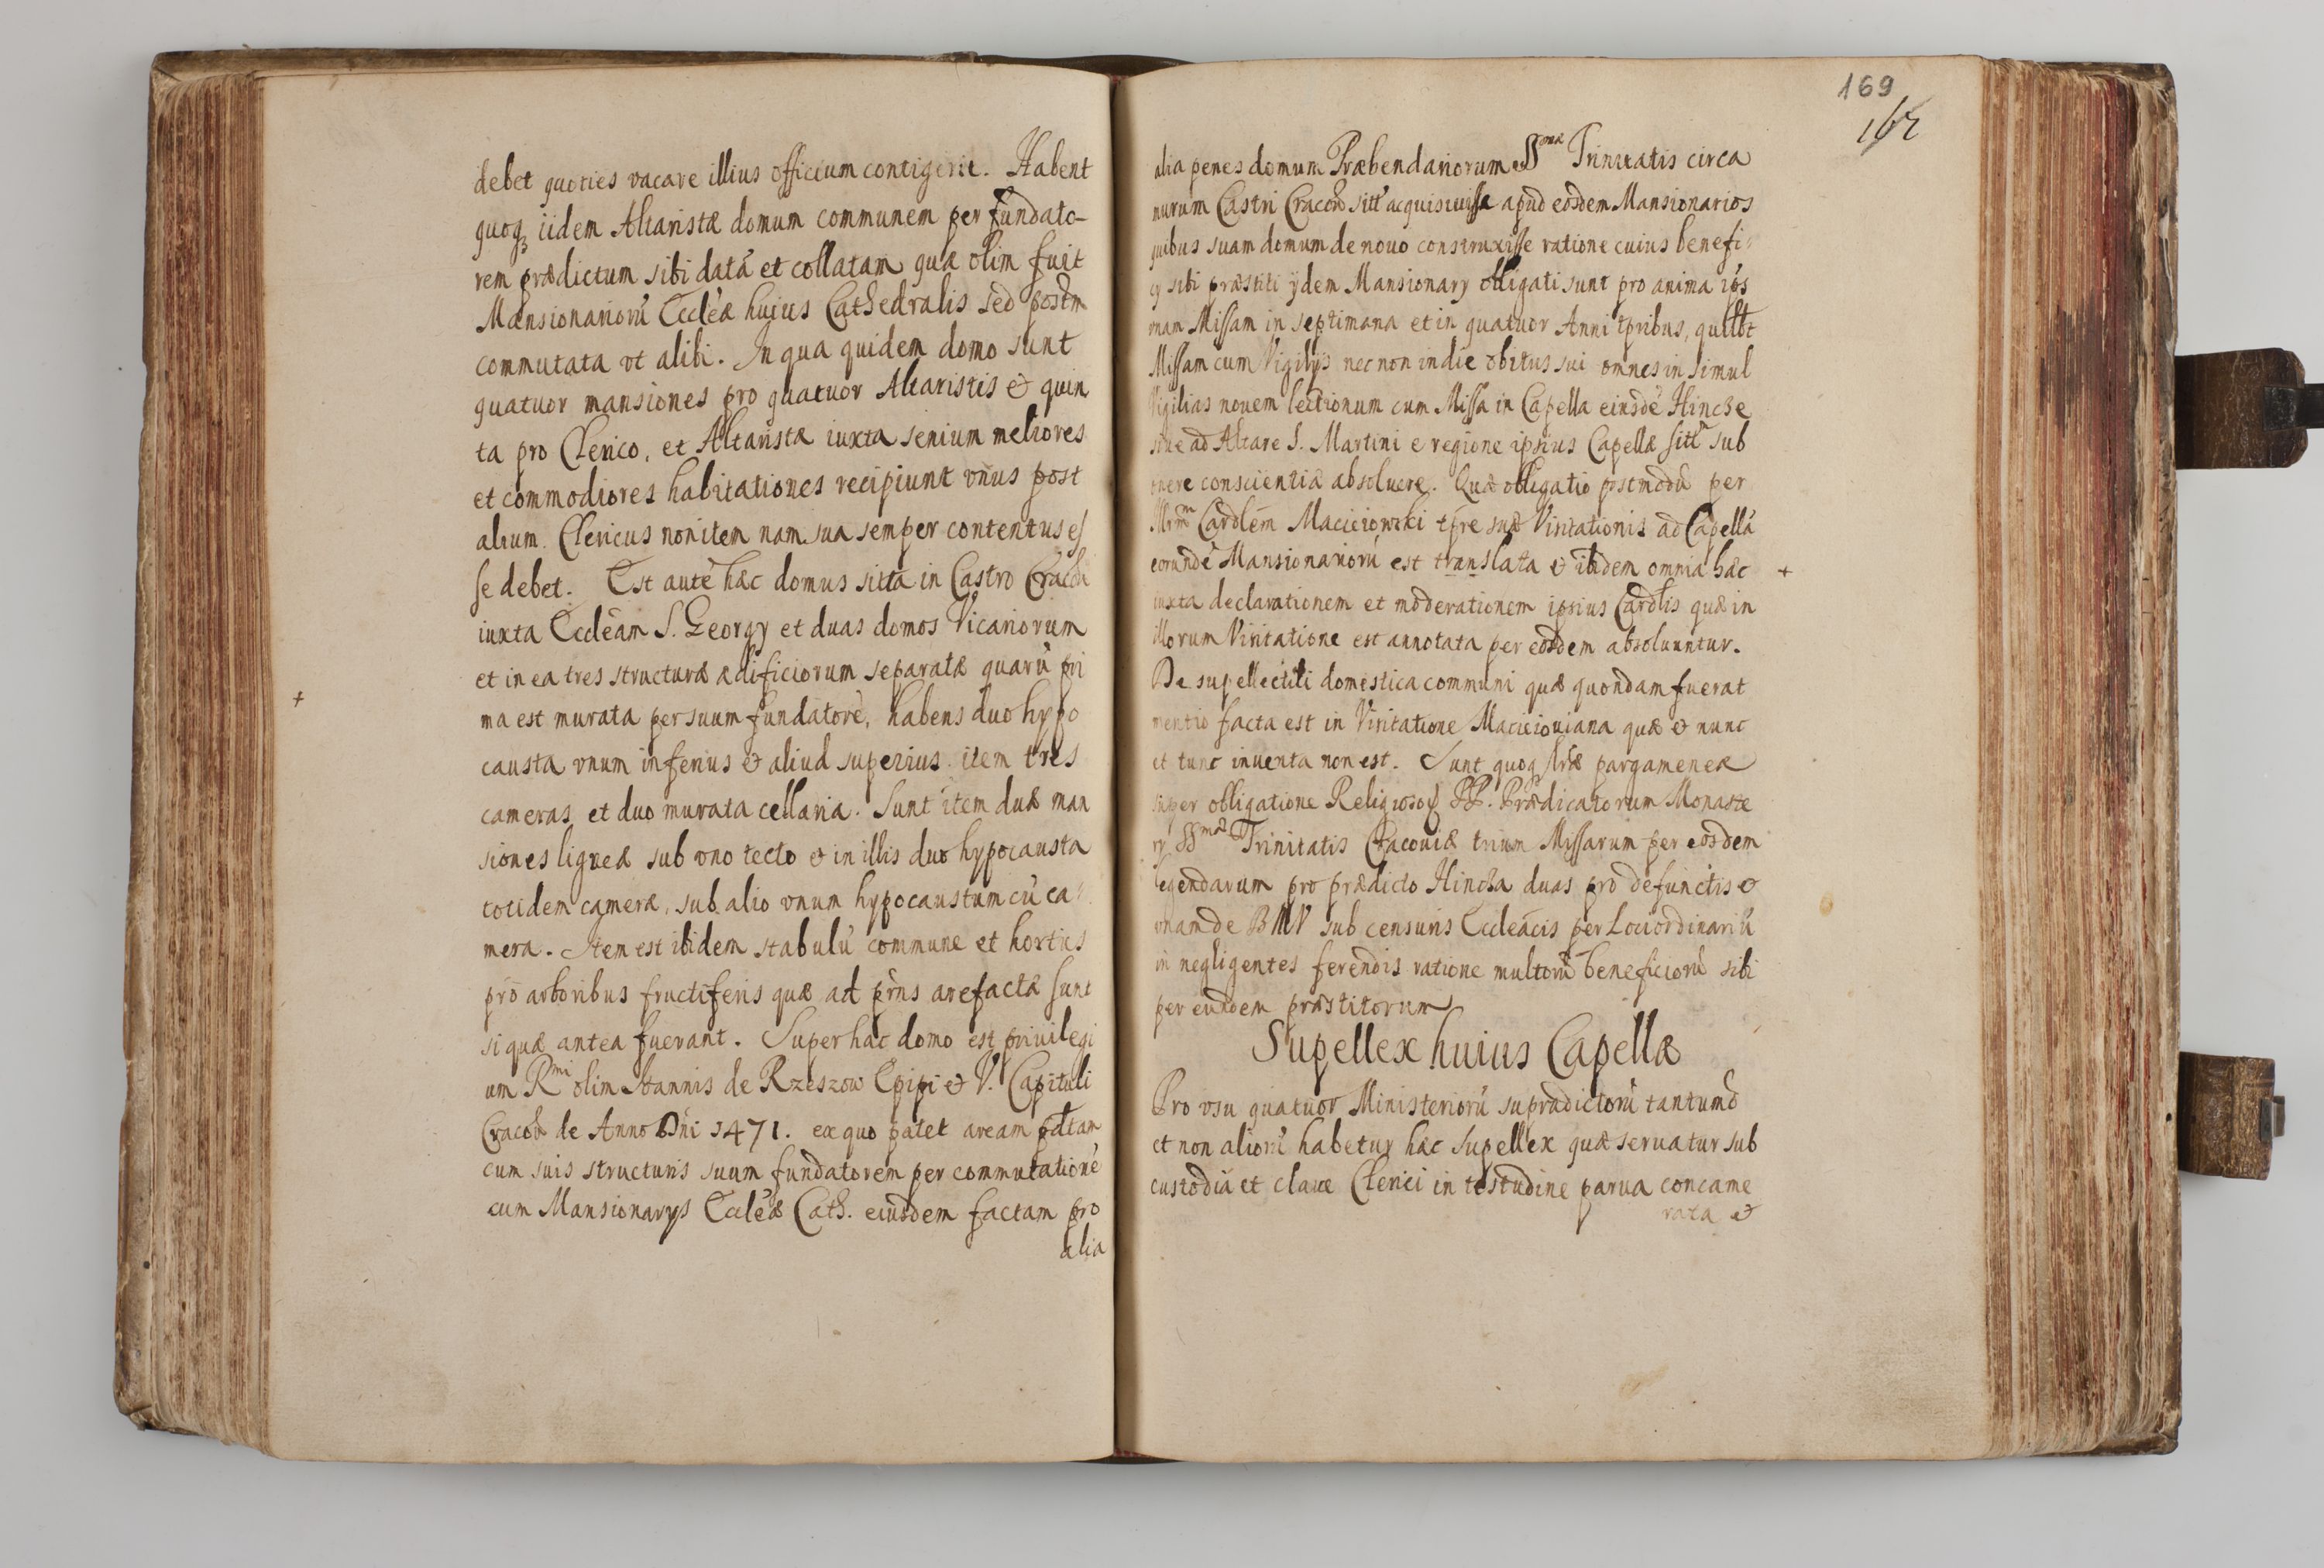 debet quoties vacare illius officium contigerit. Habent
quoqȝ iidem Altaristæ domum communem per fundato-
rem prædictum sibi datá et collatam quæ olim fuit
Mansionariorú Eccleæ huius Cathedralis sed postm
commutata vt alibi. In qua quidem domo sunt
quatuor mansiones pro quatuor Altaristis & quin
ta pro Clerico, et Altaristæ iuxta senium meliores
et commodiores habitationes recipiunt vnus post
alium. Clericus non item nam sua semper contentus es
se debet. Est auté hæc domus sitta in Castro Cracoū
iuxta Eccleam S. Georgy et duas domos Vicariorum
et in ea tres structuræ ædificiorum separatæ quarú pri
ma est murata per suum fundatoré, habens duo hypo
causta vnum inferius & aliud superius item tres
cameras et duo murata cellaria. Sunt item duæ man
siones ligneæ sub vno tecto & in illis duo hypocausta
totidem cameræ, sub alio vnum hypocaustum cú ca-
mera. Item est ibidem stabulú commune et hortus
pro arboribus fructiferis quæ ad prns arefactæ sunt
si quæ antea fuerant. Super hac domo est priuilegi
um Rmi olim Ioannis de Rzeszow Epipi & V. Capituli
Cracoū de Anno Dni 1471. ex quo patet aream pdtam
cum suis structuris suum fundatorem per commutationé
cum Mansionarys Eccleæ Cath. eiusdem factam pro
alia
169
alia penes domum Præbendariorum SSmæ Trinitatis circa
murum Castri Cracoū sitt acquisiuisse apud eosdem Mansionarios
quibus suam domum de nouo construxisse ratione cuius benefi-
cy sibi præstiti ijdem Mansionary obligati sunt pro anima ips
vnam Missam in septimana et in quatuor Anni tpribus, qullbt
Missam cum Vigilys nec non in die obitus sui omnes in simul
Vigilias nouem lectionum cum Missa in Capella eiusdé Hincze
siue ad Altare S. Martini e regione ipsius Capellæ sitt sub
onere conscientiæ absoluere. Quæ obligatio postmodú per
Illrmm Cardlem Macieiowski tpre suæ Visitationis ad Capellá
eorundé Mansionariorú est translata & ibidem omnia hæc
iuxta declarationem et moderationem ipsius Cardlis quæ in
illorum Visitatione est annotata per eosdem absoluuntur.
De supellectili domestica communi quæ quondam fuerat
mentio facta est in Visitatione Macieiouiana quæ & nunc
et tunc inuenta non est. Sunt quoq lræ pargameneæ
super obligatione Religiosor PP. Prædicatorum Monaste
ry SSmæ Trinitatis Cracouiæ trium Missarum per eosdem
legendarum pro prædicto Hincza duas pro defunctis &
vnam de BMV sub censuris Eccleacis per Loci ordinariú
in negligentes ferendis ratione multorú beneficiorú sibi
per eundem præstitorum
Supellex huius Capellæ
Pro vsu quatuor Ministeriorú supradictorú tantumd
et non aliorú habetur hæc supellex quæ seruatur sub
custodia et claue Clerici in testudine parua concame
rata &